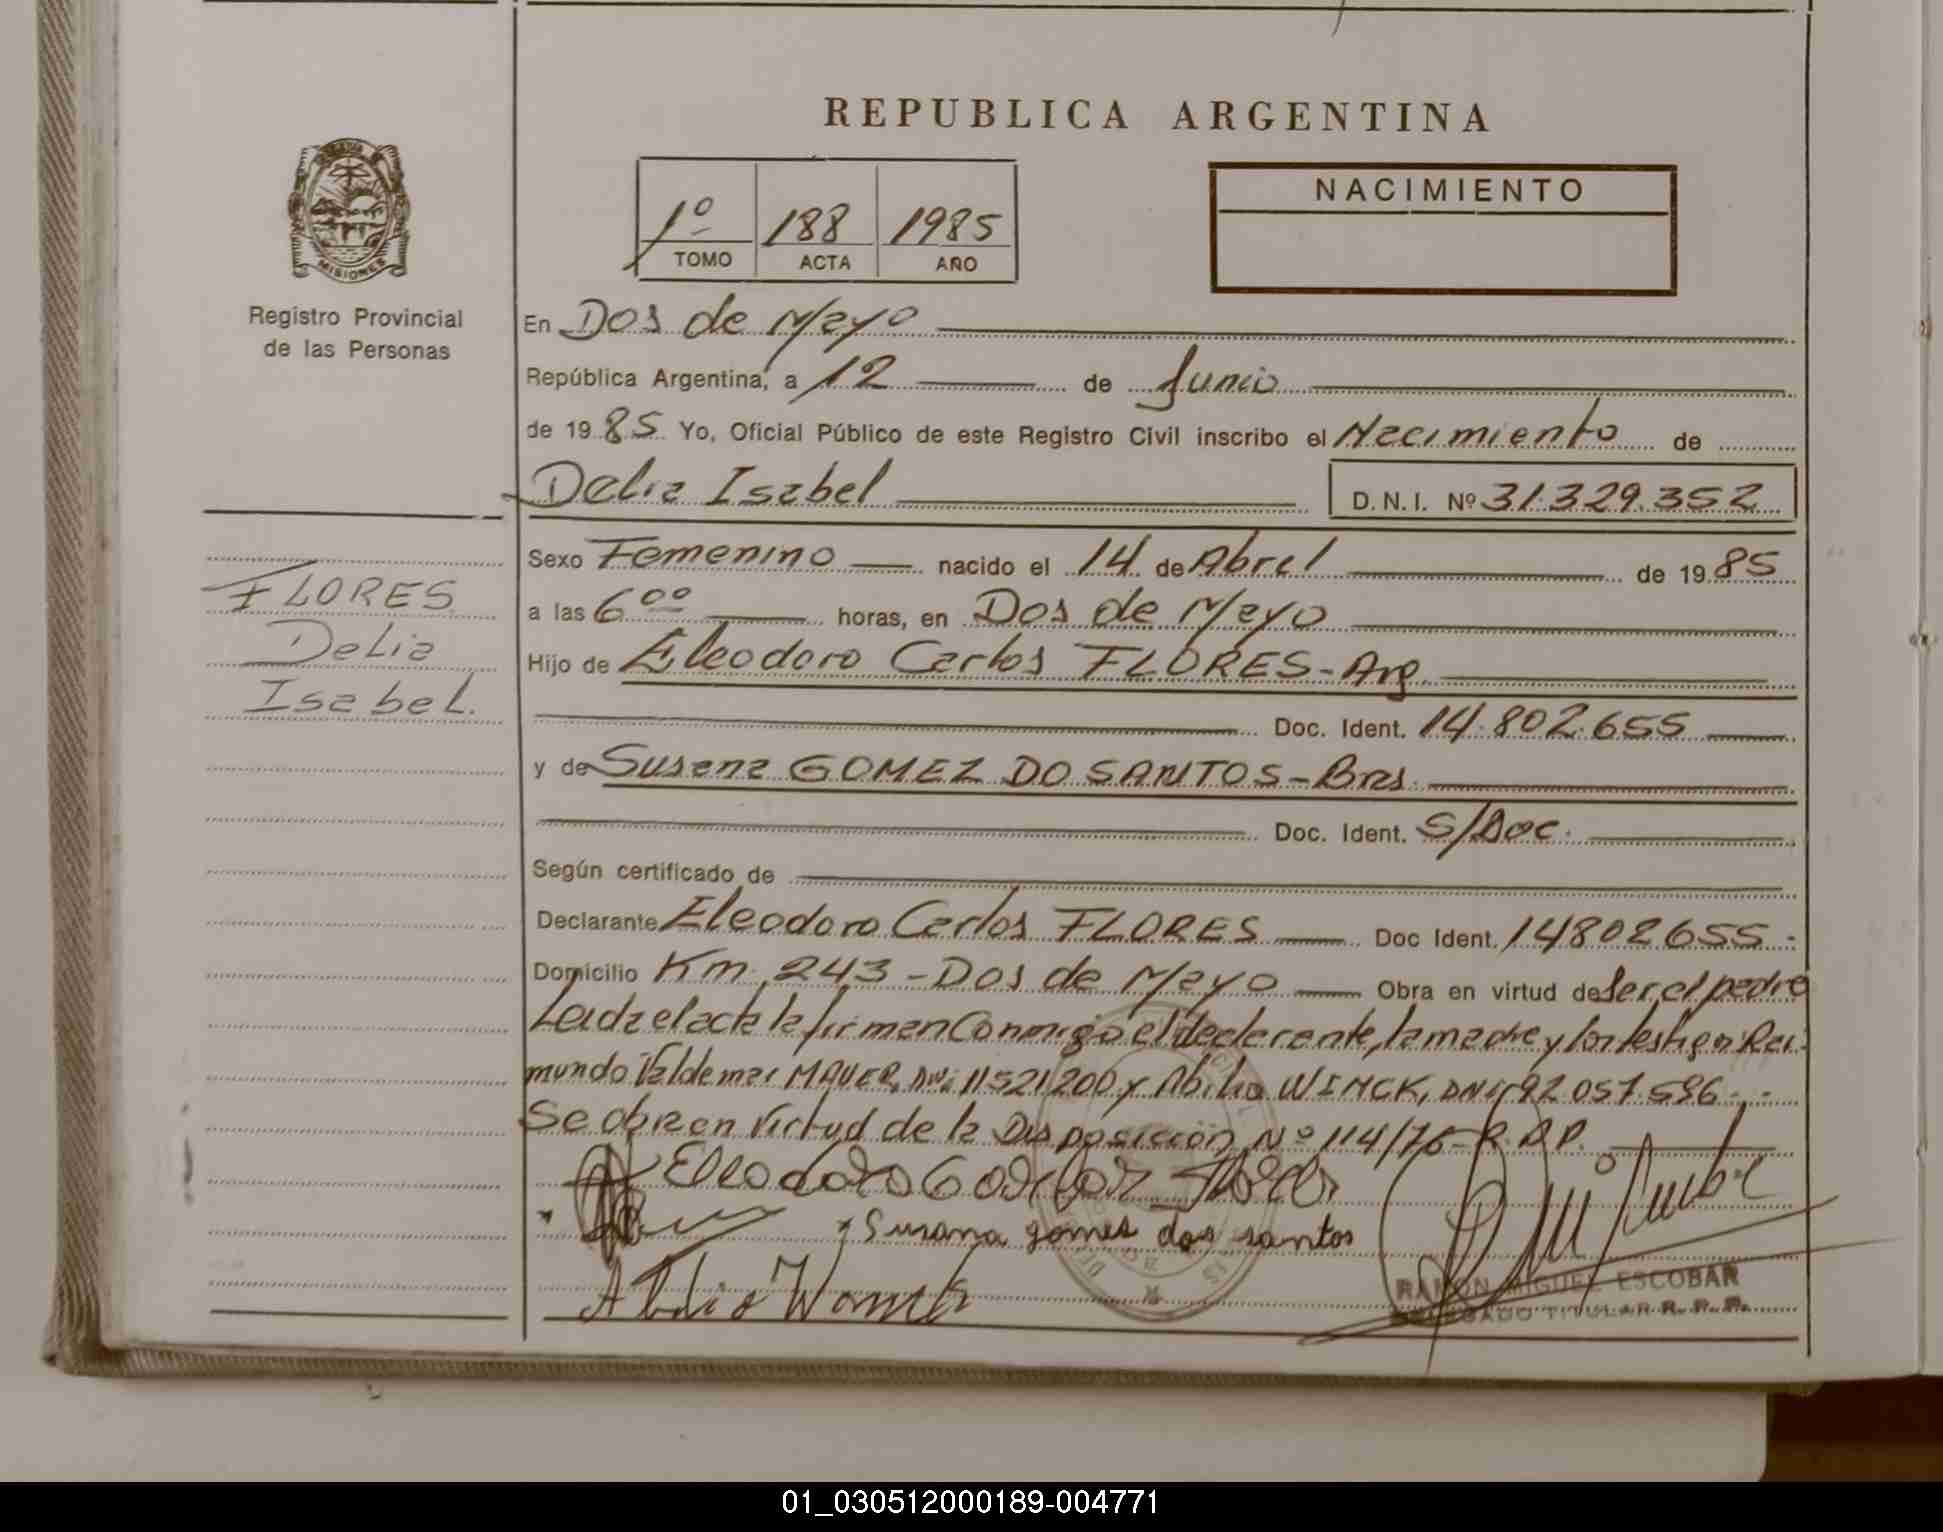 REPUBLICA ARGENTINA
MISIONES
Registro Provincial
de las Personas
1º 188 1985
TOMO ACTA AÑO
NACIMIENTO
En Dos de Mayo
República Argentina, a 12 de Junio
de 1985 Yo, Oficial Público de este Registro Civil inscribo el Nacimiento de
Delia Isabel D.N.I. Nº 31.329.352
Sexo Femenino nacido el 14 de Abril de 1985
a las 6ºº horas, en Dos de Mayo
Hijo de Eleodoro Carlos FLORES-Arg.
Doc. Ident. 14.802.655
y de Susana GOMEZ DO SANTOS-Bras.
Doc. Ident. S/Doc.
Según certificado de
Declarante Eleodoro Carlos FLORES Doc Ident. 14802655
Domicilio Km. 243-Dos de Mayo Obra en virtud de ser el padre
Leida el acta la firman conmigo el declarante, la madre y los testigos Rai-
mundo Valdemar MAUER, DNI: 11521200 y Abilio WINCK, DNI: 92.057.596.-
Se obra en virtud de la Disposición Nº 114/76-R.D.P.
Susana gomes dos santos
RAMON MIGUEL ESCOBAR
DELEGADO TITULAR R. P. P.
FLORES
Delia
Isabel.
01_030512000189-004771